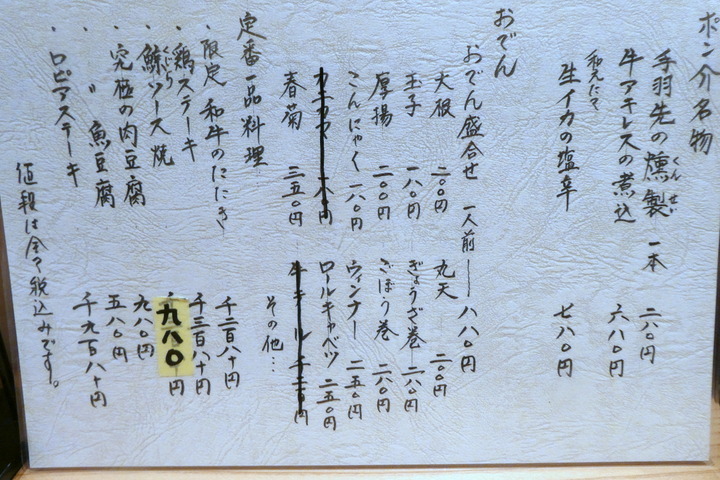 ポン介名物
手羽先の燻製 一本 二八〇円
くんせい
牛アキレスの煮込 六八〇円
和えたて
生イカの塩辛 七八〇円
おでん
おでん盛合せ 一人前 八八〇円
大根 二〇〇円 丸天 二〇〇円
玉子 一八〇円 ぎょうざ巻 二八〇円
厚揚 二〇〇円 ごぼう巻 二八〇円
こんにゃく 一八〇円 ウィンナー 二五〇円
ロールキャベツ 二五〇円
春菊 三五〇円
その他…
定番一品料理
・限定 和牛のたたき 千二百八十円
・鶏ステーキ 千三百八十円
・鯨ソース焼 九八〇円
くじら
究極の肉豆腐 九八〇円
〃 魚豆腐 五八〇円
・ロピアステーキ 千九百八十円
値段は全て税込みです。